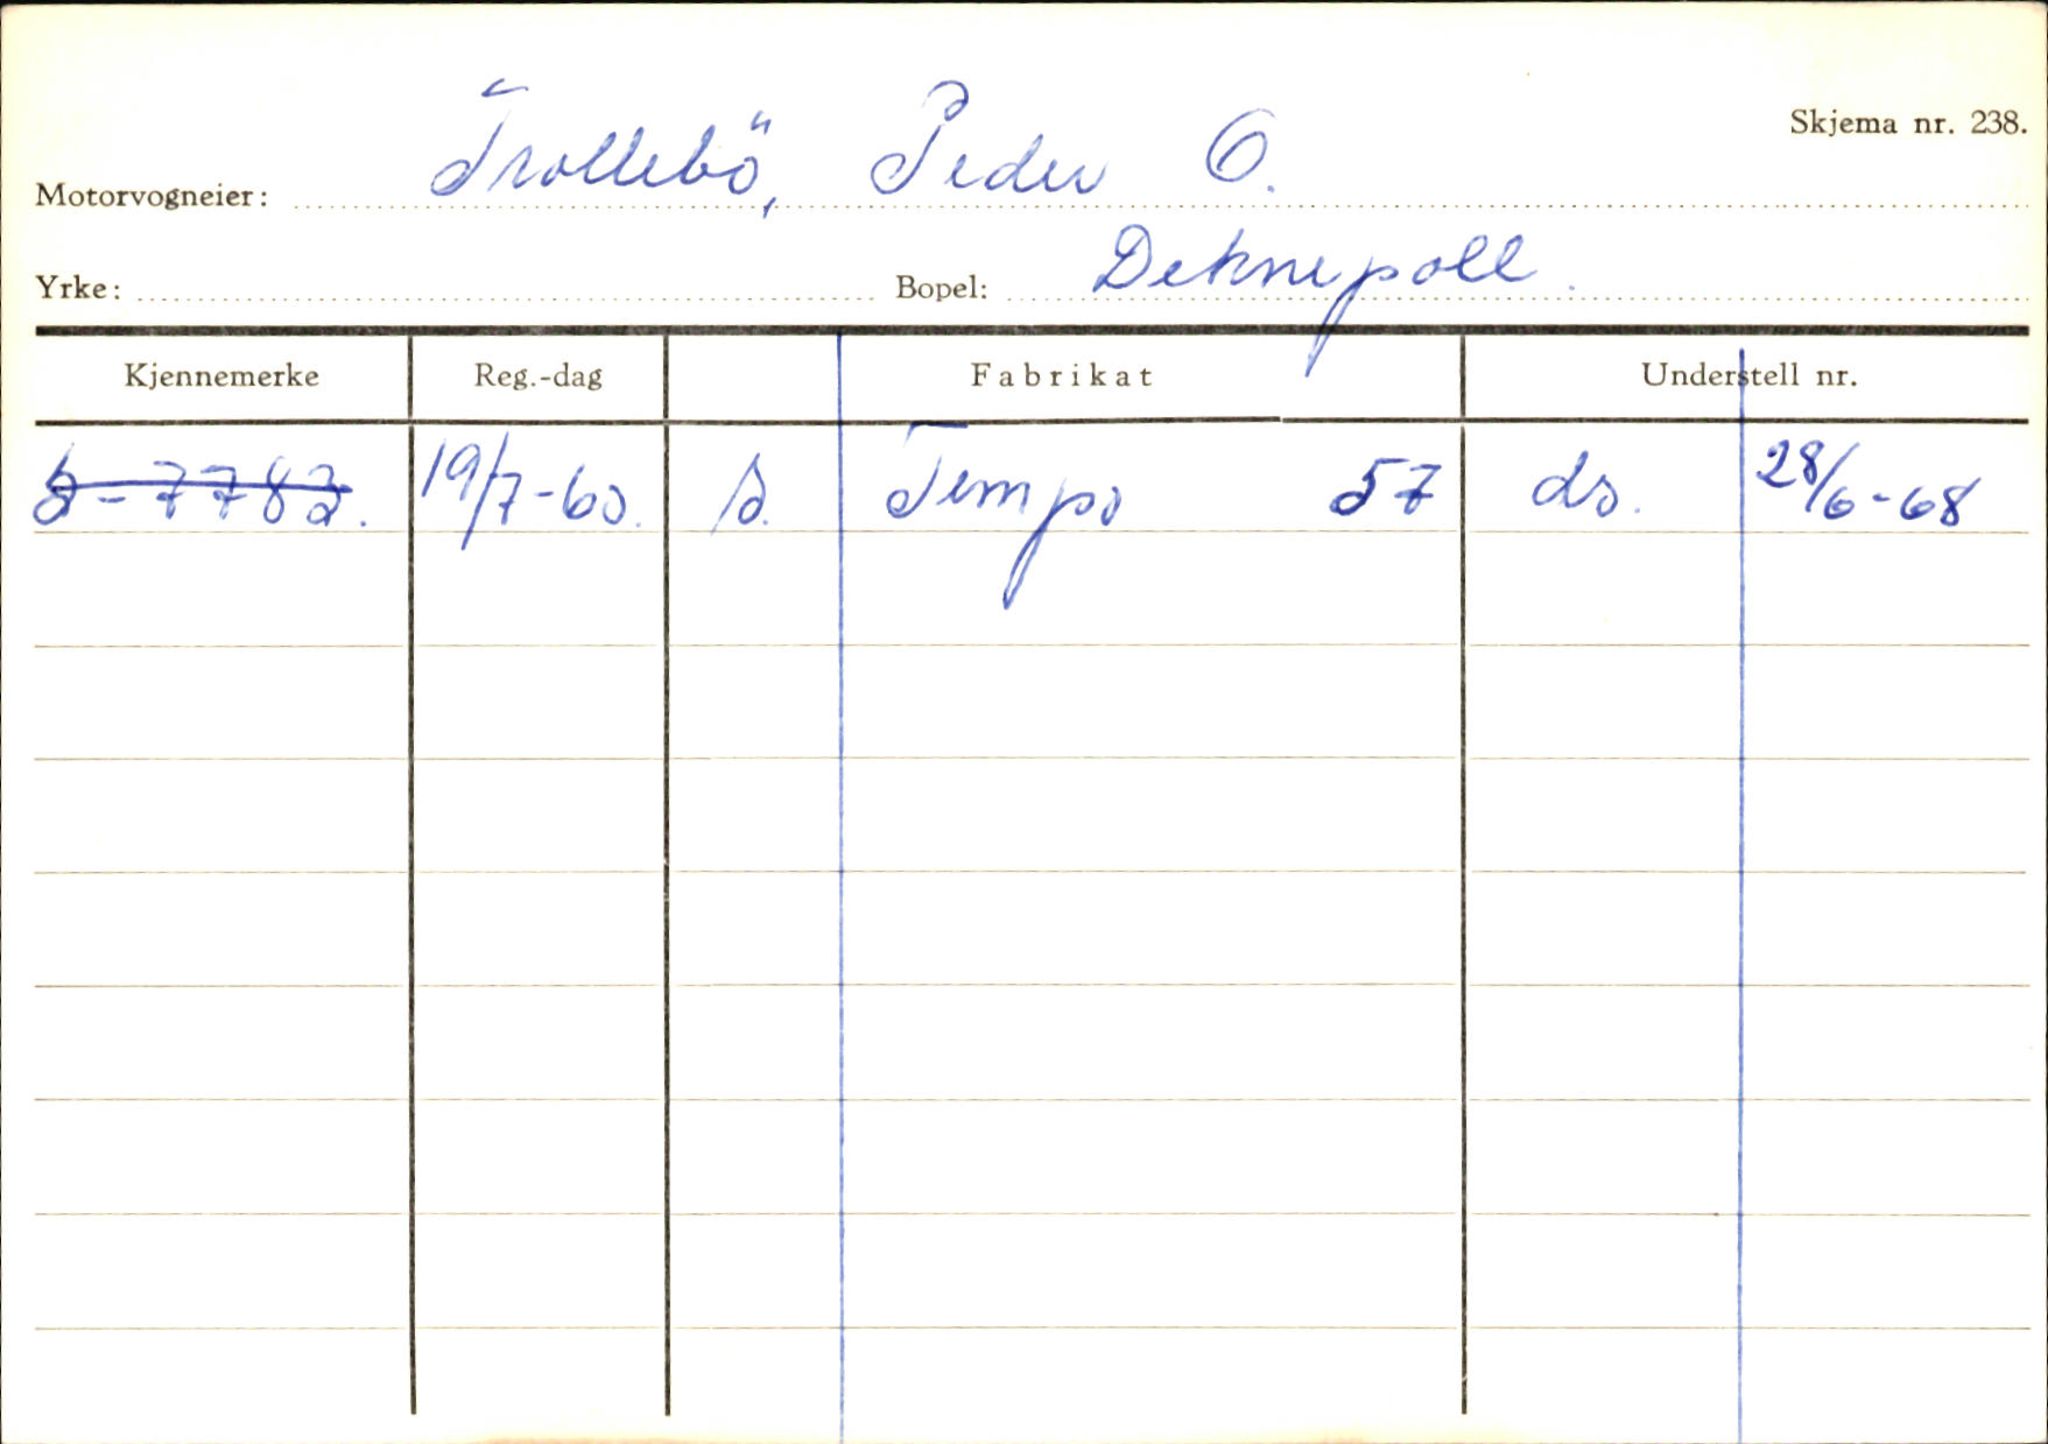 Skjema nr. 238.
Motorvogneier: Trollebö, Peder O.
Yrke: Bopel: Deknepoll.
Kjennemerke Reg.-dag Fabrikat Understell nr.
S-7782. 19/7-60. s. Tempo 57 ds. 28/6-68